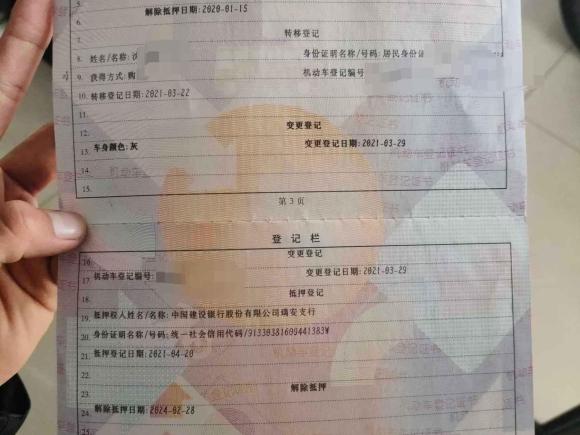 5.
6. 解除抵押日期:2020-01-15
7. 转移登记
8. 姓名/名称: 身份证明名称/号码:居民身份证
9. 获得方式:购 机动车登记编号
10. 转移登记日期:2021-03-22
11.
12. 变更登记
13. 车身颜色:灰 变更登记日期:2021-03-29
14.
15.
第 3 页
登 记 栏
16. 变更登记
17. 机动车登记编号: 变更登记日期:2021-03-29
18. 抵押登记
19. 抵押权人姓名/名称:中国建设银行股份有限公司瑞安支行
20. 身份证明名称/号码:统一社会信用代码/91330381609441383W
21. 抵押登记日期:2021-04-20
22.
23. 解除抵押
24. 解除抵押日期:2024-02-28
25.